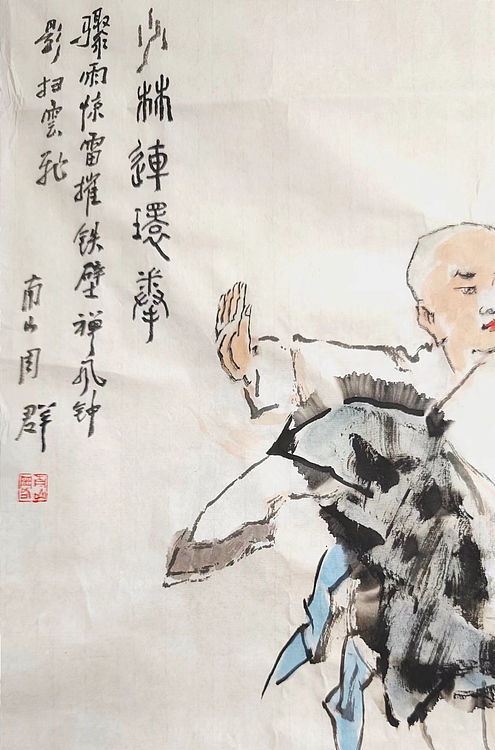 少林連環拳
骤雨惊雷摧铁壁禅风钟
影扫雲
南山周群